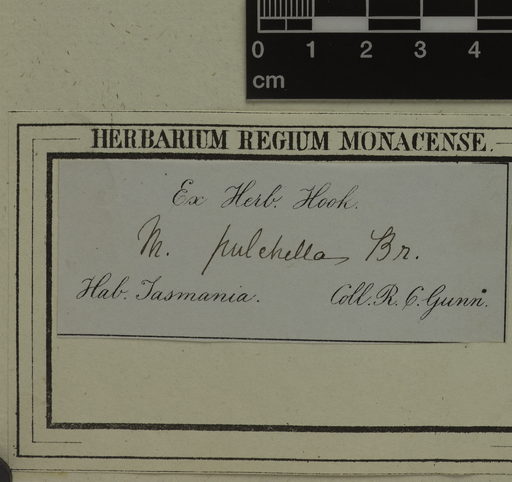 0 1 2 3 4
cm
HERBARIUM REGIUM MONACENSE.
Ex Herb. Hook.
M. pulchella Br.
Hab. Tasmania. Coll. R. C. Gunn.